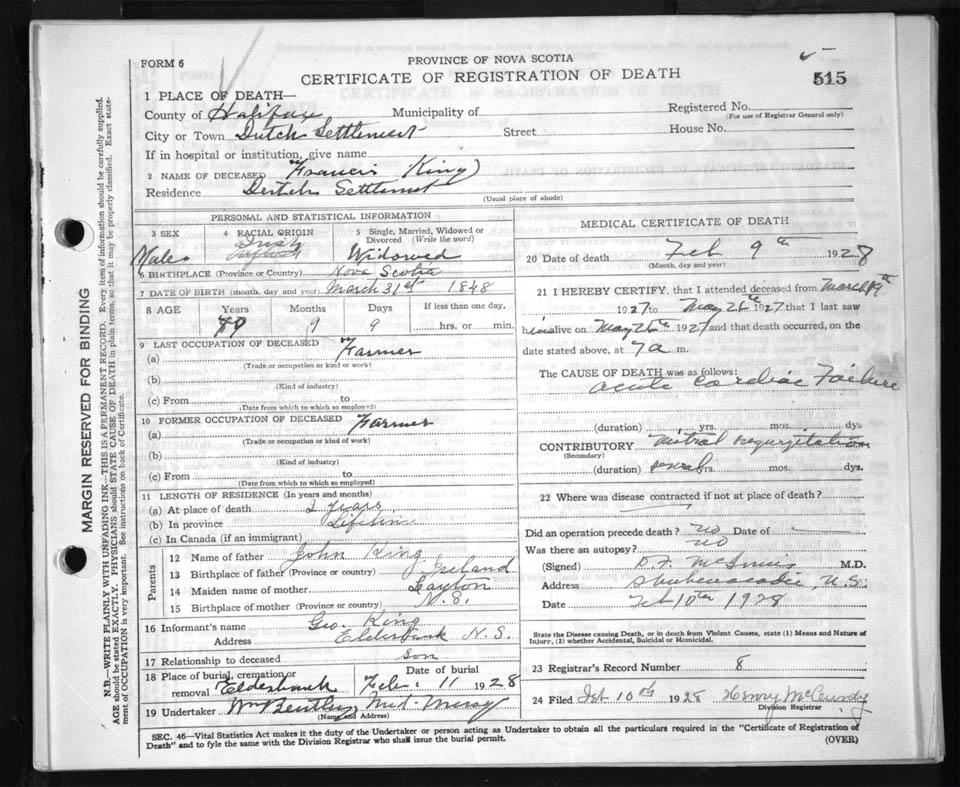 FORM 6
PROVINCE OF NOVA SCOTIA
CERTIFICATE OF REGISTRATION OF DEATH
515
1 PLACE OF DEATH—
County of Halifax Municipality of
Registered No.
(For use of Registrar General only)
City or Town Dutch Settlement Street House No.
If in hospital or institution, give name
2 NAME OF DECEASED Francis King
Residence Dutch Settlement
(Usual place of abode)
PERSONAL AND STATISTICAL INFORMATION
3 SEX 4 RACIAL ORIGIN 5 Single, Married, Widowed or Divorced (Write the word)
Male Irish Widowed
6 BIRTHPLACE (Province or Country) Nova Scotia
7 DATE OF BIRTH (month, day and year) March 31st 1848
8 AGE Years Months Days If less than one day,
9 9 hrs. or min.
9 LAST OCCUPATION OF DECEASED
(a) Farmer
(Trade or occupation or kind or work)
(b)
(Kind of industry)
(c) From to
(Date from which to which so employed)
10 FORMER OCCUPATION OF DECEASED
(a) Farmer
(Trade or occupation or kind of work)
(b)
(Kind of industry)
(c) From to
(Date from which to which so employed)
11 LENGTH OF RESIDENCE (In years and months)
(a) At place of death 2 years
(b) In province Lifetime
(c) In Canada (if an immigrant)
Parents
12 Name of father John King
13 Birthplace of father (Province or country) Ireland
14 Maiden name of mother Layton
15 Birthplace of mother (Province or country) N.S.
16 Informant's name Geo. King
Address Elderbank N.S.
17 Relationship to deceased son
18 Place of burial, cremation or removal Elderbank Date of burial Feb. 11 1928
19 Undertaker Wm Bentley Mid. Musq
(Name and Address)
MEDICAL CERTIFICATE OF DEATH
20 Date of death Feb 9th 1928
(Month, day and year)
21 I HEREBY CERTIFY, that I attended deceased from March 19th
1927 to May 26th 1927 that I last saw
him alive on May 26th 1927 and that death occurred, on the
date stated above, at 7 a m.
The CAUSE OF DEATH was as follows:
acute cardiac Failure
(duration) yrs. mos. dys
CONTRIBUTORY mitral regurgitation
(Secondary)
(duration) yrs. mos. dys.
22 Where was disease contracted if not at place of death?
Did an operation precede death? no Date of
Was there an autopsy? no
(Signed) M.D.
Address Shubenacadie N.S.
Date Feb 10th 1928
State the Disease causing Death, or in death from Violent Causes, state (1) Means and Nature of
Injury, (2) whether Accidental, Suicidal or Homicidal.
23 Registrar's Record Number 8
24 Filed Feb 10th 1928 Henry McCurdy
Division Registrar
SEC. 46—Vital Statistics Act makes it the duty of the Undertaker or person acting as Undertaker to obtain all the particulars required in the "Certificate of Registration of
Death" and to fyle the same with the Division Registrar who shall issue the burial permit.
(OVER)
MARGIN RESERVED FOR BINDING
N.B.—WRITE PLAINLY WITH UNFADING INK—THIS IS A PERMANENT RECORD. Every item of information should be carefully supplied.
AGE should be stated EXACTLY. PHYSICIANS should STATE CAUSE OF DEATH in plain terms, so that it may be properly classified. Exact statement of OCCUPATION is very important. See instructions on back of Certificate.